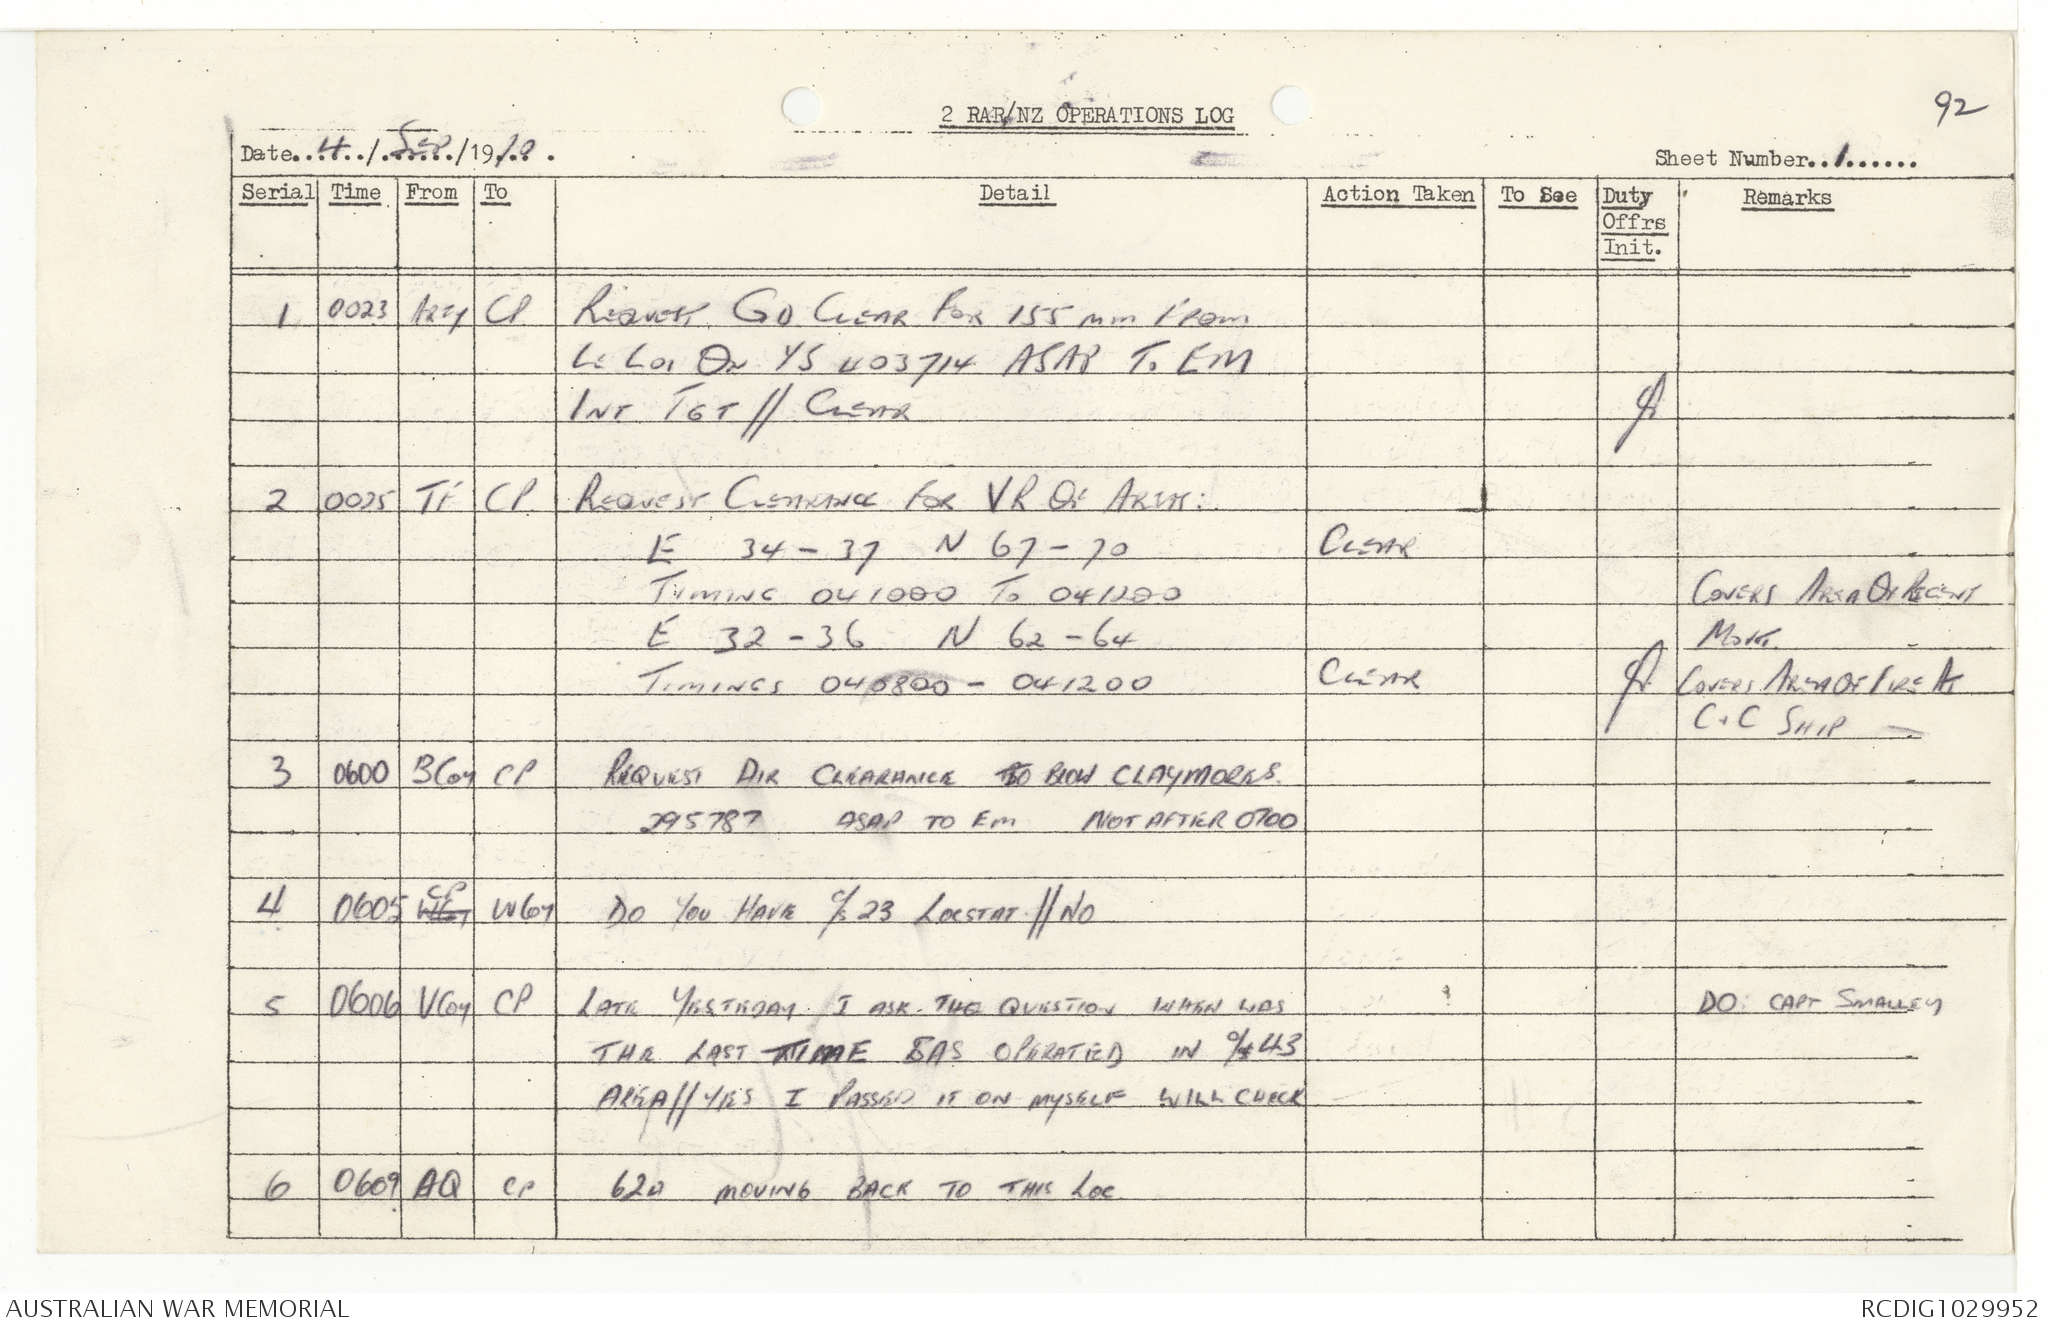 92
2 RAR/NZ OPERATIONS LOG
Date...4../.Sep./1970.
Sheet Number..1......
Serial Time From To Detail Action Taken To See Duty Offrs Init. Remarks
1 0023 Arty CP REQUEST GD CLEAR FOR 155 mm FROM
LE LOI ON YS 403714 ASAP TO EM
INT TGT // CLEAR
2 0025 TF CP REQUEST CLEARANCE FOR VR OF AREA:
E 34-37 N 67-70 CLEAR
TIMING 041000 TO 041200 COVERS AREA OF RECENT
E 32-36 N 62-64 MOVT.
TIMINGS 040800 - 041200 CLEAR COVERS AREA OF FIRE AT
C+C SHIP
3 0600 BCoy CP REQUEST AIR CLEARANCE TO BLOW CLAYMORES.
295787 ASAP TO EM NOT AFTER 0700
4 0605 CP WCoy DO YOU HAVE C/S 23 LOCSTAT // NO
5 0606 VCoy CP LATE YESTERDAY I ASK THE QUESTION WHEN WAS DO: CAPT SMALLEY
THE LAST TIME SAS OPERATED IN C/S 43
AREA // YES I PASSED IT ON MYSELF WILL CHECK
6 0609 AQ CP 62A MOVING BACK TO THIS LOC
AUSTRALIAN WAR MEMORIAL
RCDIG1029952